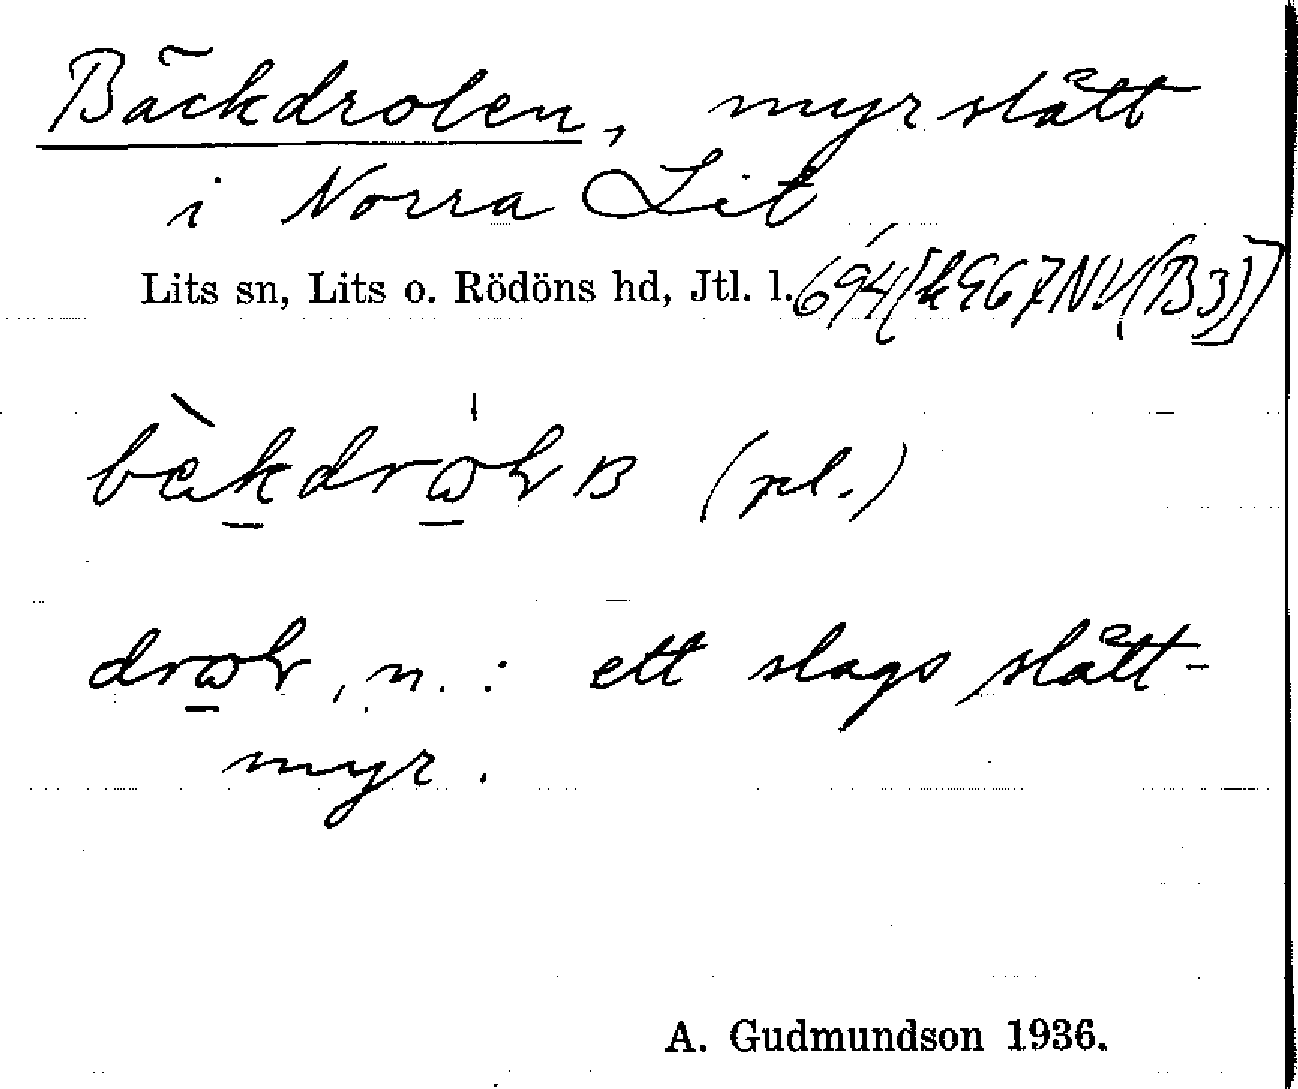 Bäckdrolen, myrslått
i Norra Lit
Lits sn, Lits o. Rödöns hd, Jtl. l. 694[k967NV(B3)]
bèkdrωlʀ (pl.)
drωl, n. : ett slags slått-
myr.
A. Gudmundson 1936.